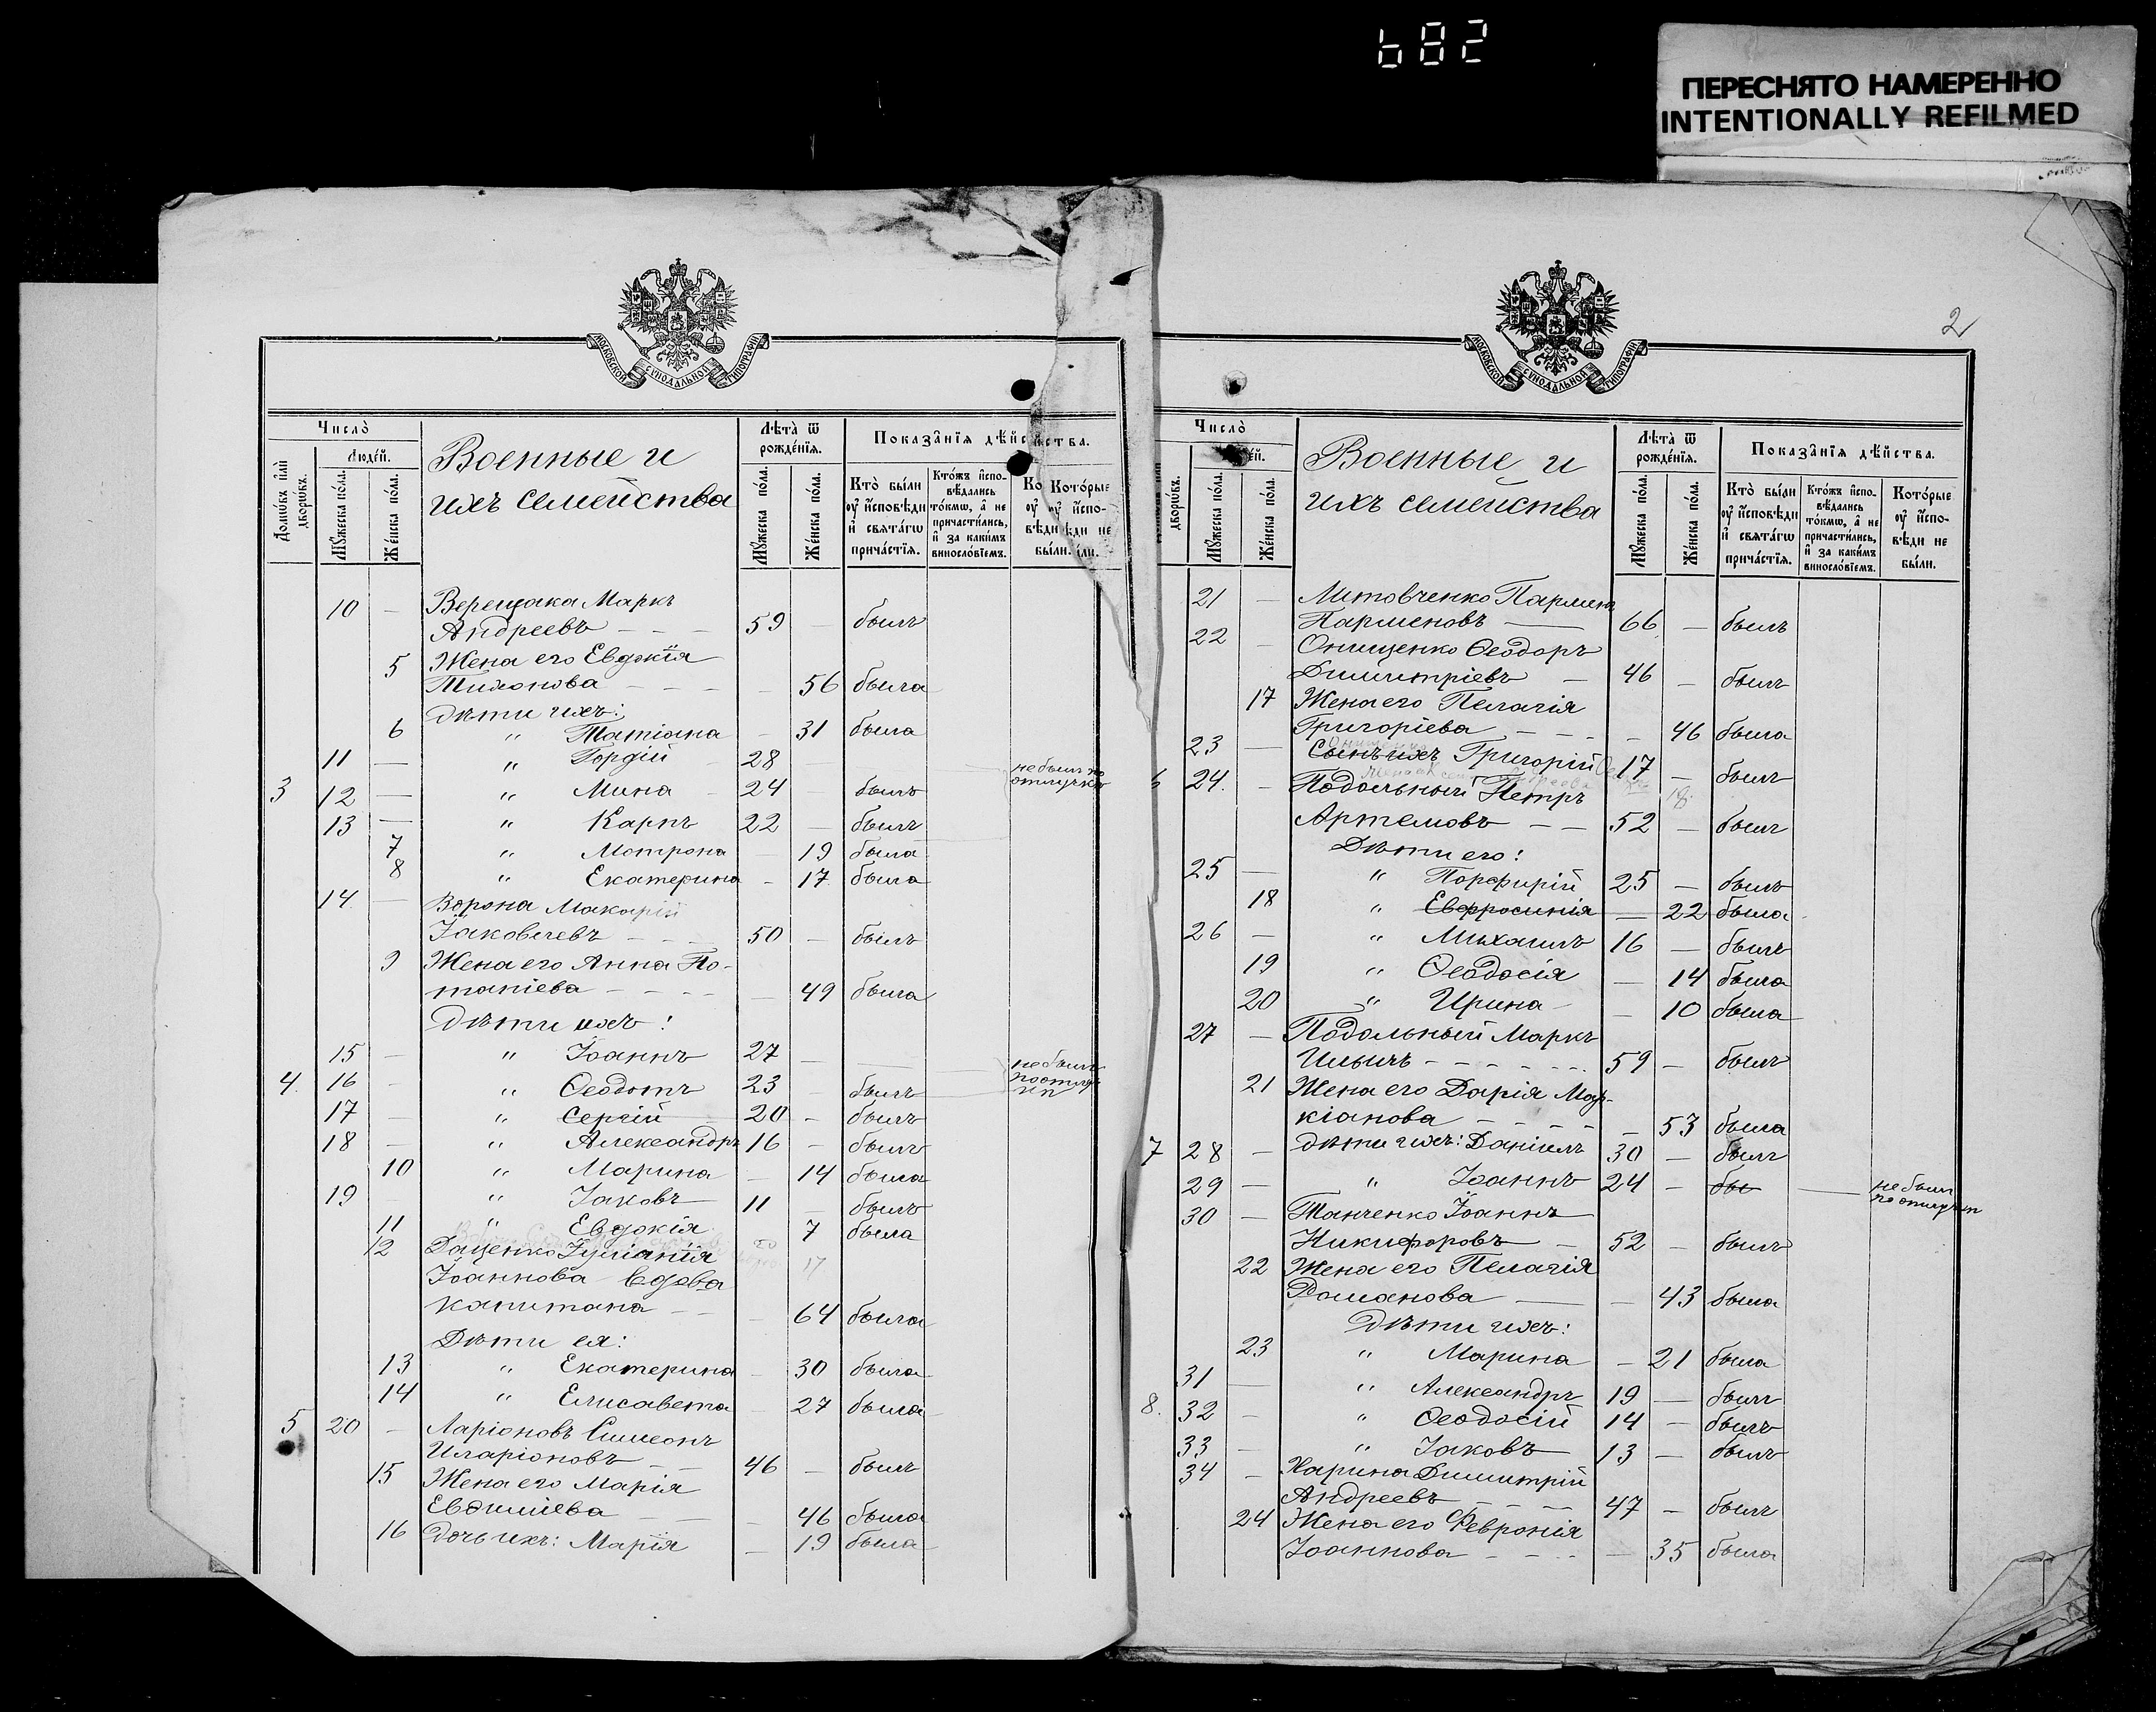 682
ПЕРЕСНЯТО НАМЕРЕННО
INTENTIONALLY REFILMED
МОСКОВСКОЙ СѴНОДАЛЬНОЙ ТИПОГРАФІИ
Число̀
Людей.
Домѡвъ и҆лѝ дворѡвъ.
Мꙋжеска по́ла.
Же́нска по́ла.
Военные и
ихъ семейства
Лѣта̀ ѿ рожде́нїѧ.
Мꙋжеска по́ла.
Же́нска по́ла.
Показа̑нїѧ дѣйства.
Кто̀ бы́ли ᲂу҆ и҆сповѣди и҆ свѧта́гѡ прича́стїѧ.
Кто́жъ и҆споВѣдались то́кмѡ, а҆ не причасти́лись, и҆ за каки́мъ винослові́емъ.
Кото́рые ᲂу҆ и҆сповѣди не бы́ли.
10 — Верещака Маркъ
Андреевъ — — — 59 — былъ
5 Жена его Евдокія
Тихонова — — — — 56 была
Дѣти ихъ:
6 " Татіана — 31 была
11 — " Гордій 28 — не былъ по отлучкѣ
3 12 — " Мина 24 — былъ
13 — " Карпъ 22 — былъ
7 " Мотрона — 19 была
8 " Екатерина — 17 была
14 — Ворона Макарій
Іаковлевъ — — 50 — былъ
9 Жена его Анна По-
тапіева — — — — 49 была
Дѣти ихъ:
15 — " Іоаннъ 27 — не былъ
4. 16 — " Ѳеодотъ 23 — былъ
17 — " Сергій 20 — былъ
18 — " Александръ 16 — былъ
10 " Марина — 14 была
19 — " Іаковъ 11 — былъ
11 " Евдокія 7 была
12 Даценко Іуліанія 17
Іоаннова вдова
капитана — — — 64 была
Дѣти ея:
13 " Екатерина — 30 была
14 " Елисавета — 27 была
5 20 — Ларіоновъ Симеонъ
Иларіоновъ — — 46 — былъ
15 Жена его Марія
Евфиміева — — — 46 была
16 Дочь ихъ: Марія — 19 была
2
МОСКОВСКОЙ СѴНОДАЛЬНОЙ ТИПОГРАФІИ
Число̀
дворѡвъ.
Мꙋжеска по́ла.
Же́нска по́ла.
Военные и
ихъ семейства
Лѣта̀ ѿ рожде́нїѧ.
Мꙋжеска по́ла.
Же́нска по́ла.
Показа̑нїѧ дѣйства.
Кто̀ бы́ли ᲂу҆ и҆сповѣди и҆ свѧта́гѡ прича́стїѧ.
Кто́жъ и҆споВѣдались то́кмѡ, а҆ не причасти́лись, и҆ за каки́мъ винослові́емъ.
Кото́рые ᲂу҆ и҆сповѣди не бы́ли.
21 — Литовченко Парменъ
Парменовъ — 66 — былъ
22 — Онищенко Ѳеодоръ
Димитріевъ — 46 — былъ
17 Жена его Пелагія
Григоріева — — — — 46 была
23 — Сынъ ихъ Григорій 17 — былъ
24. — Подольный Петръ 18.
Артемовъ — — 52 — былъ
Дѣти его:
25 — " Порфирій 25 — былъ
18 " Евфросинія — 22 была
26 — " Михаилъ 16 — былъ
19 " Ѳеодосія — 14 была
20 " Ирина — 10 была
27 — Подольный Маркъ
Ильичъ — — — 59 — былъ
21 Жена его Дарія Мар-
кіанова — — — — 53 была
7 28 — Дѣти ихъ: Даніилъ 30 — былъ
29 — " Іоаннъ 24 — бы — не былъ по отлучкѣ
30 — Танченко Іоаннъ
Никифоровъ — 52 — былъ
22 Жена его Пелагія
Романова — — 43 была
Дѣти ихъ:
23 " Марина — 21 была
31 — " Александръ 19 — былъ
8. 32 — " Ѳеодосій 14 — былъ
33 — " Іаковъ 13 — былъ
34 — Харина Димитрій
Андреевъ — — 47 — былъ
24 Жена его Февронія
Іоаннова — — — — 35 была